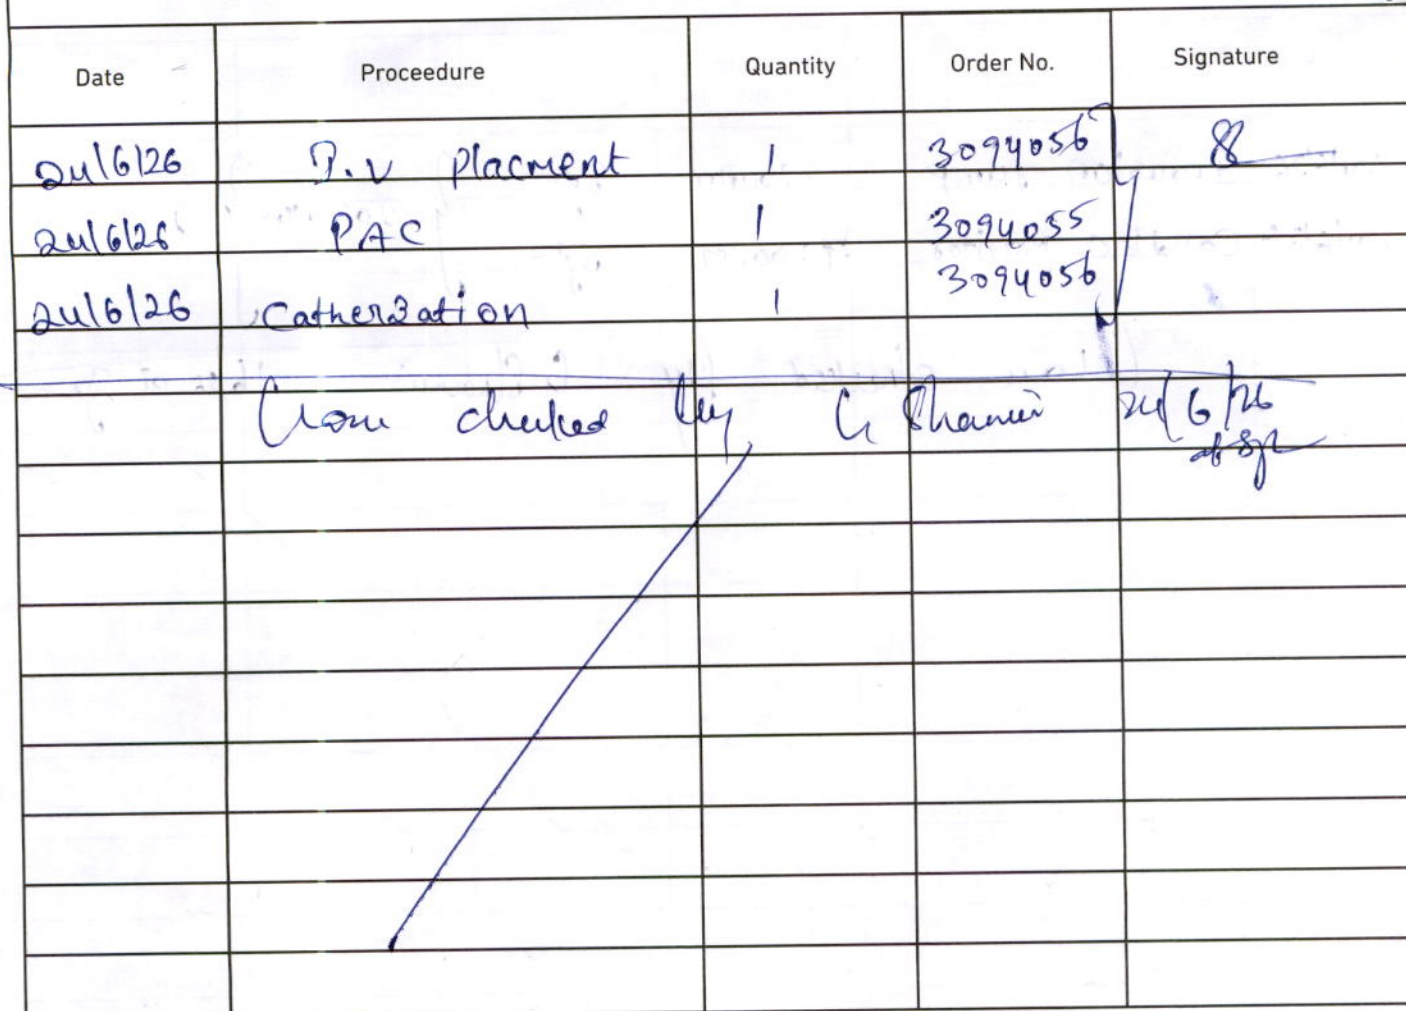 Date Proceedure Quantity Order No. Signature
24/6/26 I.V Placment 1 3094056
24/6/26 PAC 1 3094055
24/6/26 Catherzation 1 3094056
Cross cheked by Shamii 24/6/26